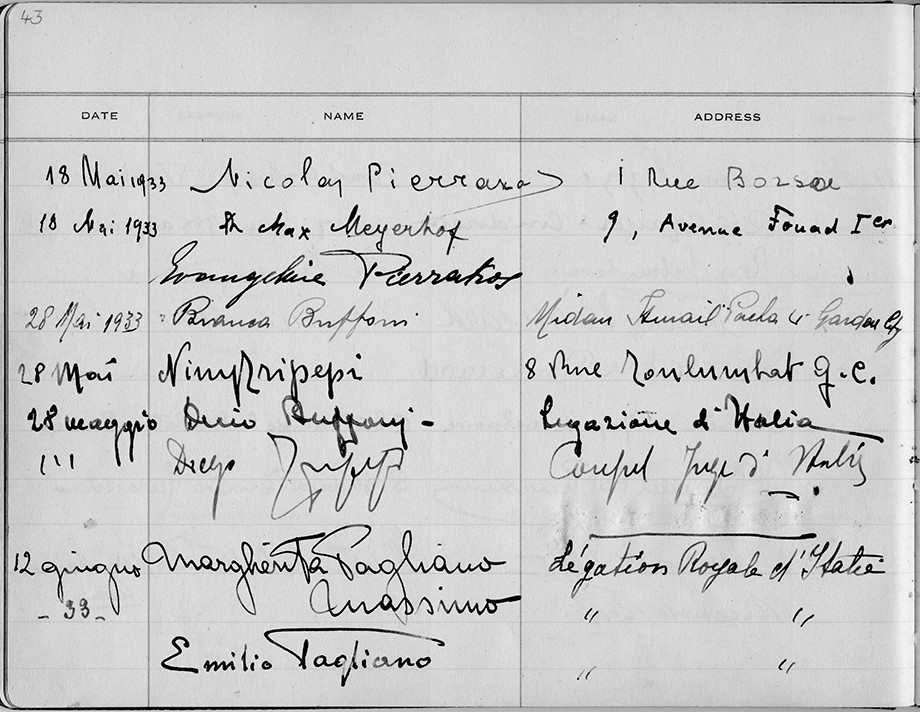 43
DATE NAME ADDRESS
18 Mai 1933 Nicolas Pierrakos 1 Rue Borsa
18 Mai 1933 Dr Max Meyerhof 9, Avenue Fouad Ier
Evangeline Pierrakos
28 Mai 1933 Bianca Buffoni Midan Ismail Pacha 4 Garden City
28 Mai 8 Rue G. C.
28 maggio Decio Buffoni - Legazione d'Italia
" Diego Consul Juge d'Italie
12 giugno Margherita Pagliano Légation Royale d'Italie
- 33 - Massimo " "
Emilio Pagliano " "